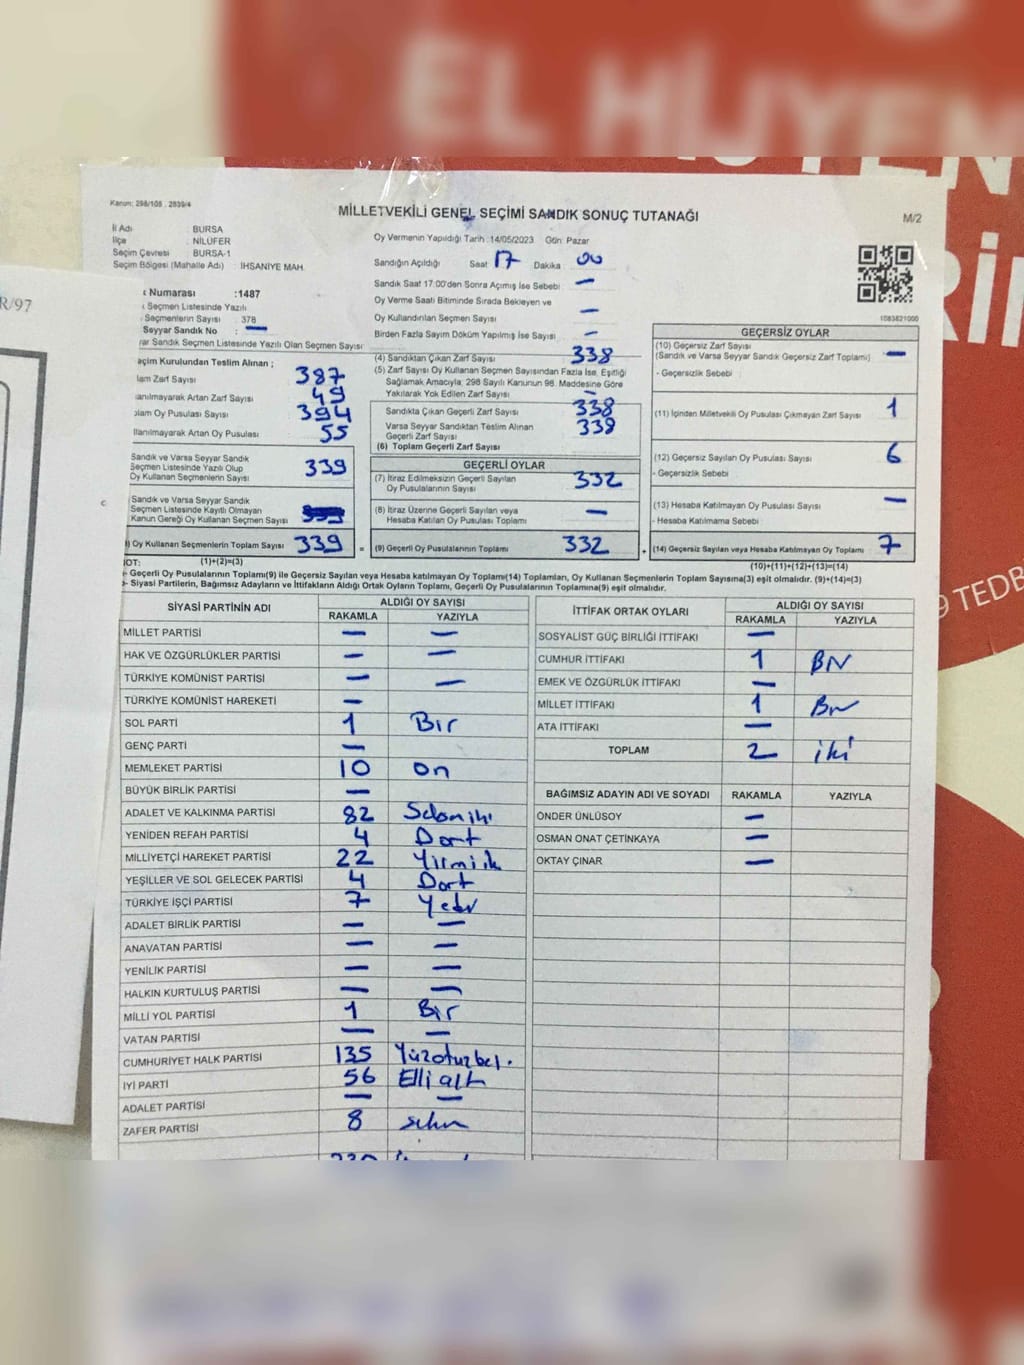 EL HİJYEN
Kanun: 298/105 , 2839/4
MİLLETVEKİLİ GENEL SEÇİMİ SANDIK SONUÇ TUTANAĞI
M/2
İl Adı : BURSA
İlçe : NİLÜFER
Seçim Çevresi : BURSA-1
Seçim Bölgesi (Mahalle Adı) : İHSANİYE MAH.
Numarası :1487
Seçmen Listesinde Yazılı
Seçmenlerin Sayısı : 378
Seyyar Sandık No : —
Sandık Seçmen Listesinde Yazılı Olan Seçmen Sayısı
Oy Vermenin Yapıldığı Tarih :14/05/2023 Gün: Pazar
Sandığın Açıldığı Saat 17 Dakika 00
Sandık Saat 17:00'den Sonra Açımış İse Sebebi : —
Oy Verme Saati Bitiminde Sırada Bekleyen ve
Oy Kullandırılan Seçmen Sayısı —
Birden Fazla Sayım Döküm Yapılmış İse Sayısı —
1083821000
Seçim Kurulundan Teslim Alınan ;
Zarf Sayısı 387
Artan Zarf Sayısı 49
Oy Pusulası Sayısı 394
Artan Oy Pusulası 55
Sandık ve Varsa Seyyar Sandık
Seçmen Listesinde Yazılı Olup
Oy Kullanan Seçmenlerin Sayısı 339
Sandık ve Varsa Seyyar Sandık
Seçmen Listesinde Kayıtlı Olmayan
Kanun Gereği Oy Kullanan Seçmen Sayısı
Oy Kullanan Seçmenlerin Toplam Sayısı 339
(1)+(2)=(3)
(4) Sandıktan Çıkan Zarf Sayısı 338
(5) Zarf Sayısı Oy Kullanan Seçmen Sayısından Fazla İse, Eşitliği
Sağlamak Amacıyla, 298 Sayılı Kanunun 98. Maddesine Göre
Yakılarak Yok Edilen Zarf Sayısı —
Sandıkta Çıkan Geçerli Zarf Sayısı 338
Varsa Seyyar Sandıktan Teslim Alınan
Geçerli Zarf Sayısı 338
(6) Toplam Geçerli Zarf Sayısı
GEÇERLİ OYLAR
(7) İtiraz Edilmeksizin Geçerli Sayılan
Oy Pusulalarının Sayısı 332
(8) İtiraz Üzerine Geçerli Sayılan veya
Hesaba Katılan Oy Pusulası Toplamı —
= (9) Geçerli Oy Pusulalarının Toplamı 332
GEÇERSİZ OYLAR
(10) Geçersiz Zarf Sayısı
(Sandık ve Varsa Seyyar Sandık Geçersiz Zarf Toplamı) —
- Geçersizlik Sebebi :
(11) İçinden Milletvekili Oy Pusulası Çıkmayan Zarf Sayısı 1
(12) Geçersiz Sayılan Oy Pusulası Sayısı 6
- Geçersizlik Sebebi :
(13) Hesaba Katılmayan Oy Pusulası Sayısı —
- Hesaba Katılmama Sebebi :
+ (14) Geçersiz Sayılan veya Hesaba Katılmayan Oy Toplamı 7
(10)+(11)+(12)+(13)=(14)
NOT:
- Geçerli Oy Pusulalarının Toplamı(9) ile Geçersiz Sayılan veya Hesaba katılmayan Oy Toplamı(14) Toplamları, Oy Kullanan Seçmenlerin Toplam Sayısına(3) eşit olmalıdır. (9)+(14)=(3)
- Siyasi Partilerin, Bağımsız Adayların ve İttifakların Aldığı Ortak Oyların Toplamı, Geçerli Oy Pusulalarının Toplamına(9) eşit olmalıdır.
SİYASİ PARTİNİN ADI ALDIĞI OY SAYISI
RAKAMLA YAZIYLA
MİLLET PARTİSİ — —
HAK VE ÖZGÜRLÜKLER PARTİSİ — —
TÜRKİYE KOMÜNİST PARTİSİ — —
TÜRKİYE KOMÜNİST HAREKETİ —
SOL PARTİ 1 Bir
GENÇ PARTİ —
MEMLEKET PARTİSİ 10 on
BÜYÜK BİRLİK PARTİSİ —
ADALET VE KALKINMA PARTİSİ 82
YENİDEN REFAH PARTİSİ 4 Dört
MİLLİYETÇİ HAREKET PARTİSİ 22 Yirmiik
YEŞİLLER VE SOL GELECEK PARTİSİ 4 Dört
TÜRKİYE İŞÇİ PARTİSİ 7 Yedi
ADALET BİRLİK PARTİSİ — —
ANAVATAN PARTİSİ — —
YENİLİK PARTİSİ — —
HALKIN KURTULUŞ PARTİSİ — —
MİLLİ YOL PARTİSİ 1 Bir
VATAN PARTİSİ — —
CUMHURİYET HALK PARTİSİ 135 Yüzotuzbeş.
İYİ PARTİ 56 Elli altı
ADALET PARTİSİ — —
ZAFER PARTİSİ 8 sekiz
İTTİFAK ORTAK OYLARI ALDIĞI OY SAYISI
RAKAMLA YAZIYLA
SOSYALİST GÜÇ BİRLİĞİ İTTİFAKI —
CUMHUR İTTİFAKI 1 Bir
EMEK VE ÖZGÜRLÜK İTTİFAKI —
MİLLET İTTİFAKI 1 Bir
ATA İTTİFAKI —
TOPLAM 2 iki
BAĞIMSIZ ADAYIN ADI VE SOYADI RAKAMLA YAZIYLA
ÖNDER ÜNLÜSOY —
OSMAN ONAT ÇETİNKAYA —
OKTAY ÇINAR —
R/97
9 TEDB